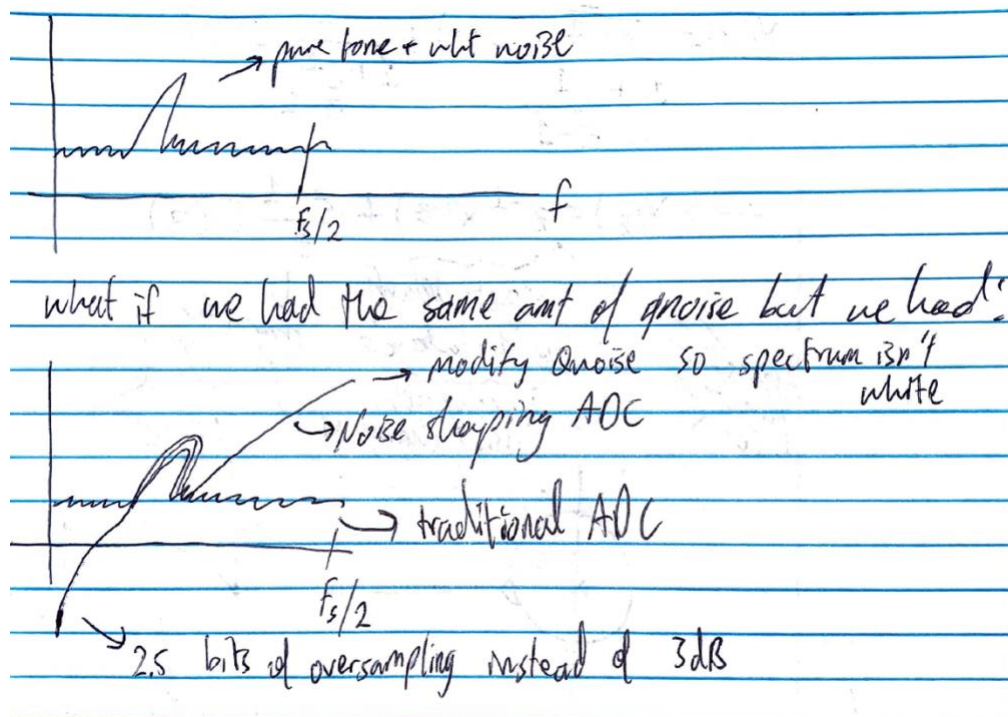 pure tone + wht noise
f
fs/2
what if we had the same amt of qnoise but we had:
modify Qnoise so spectrum isn't
white
Noise shaping ADC
traditional ADC
fs/2
2.5 bits of oversampling instead of 3dB